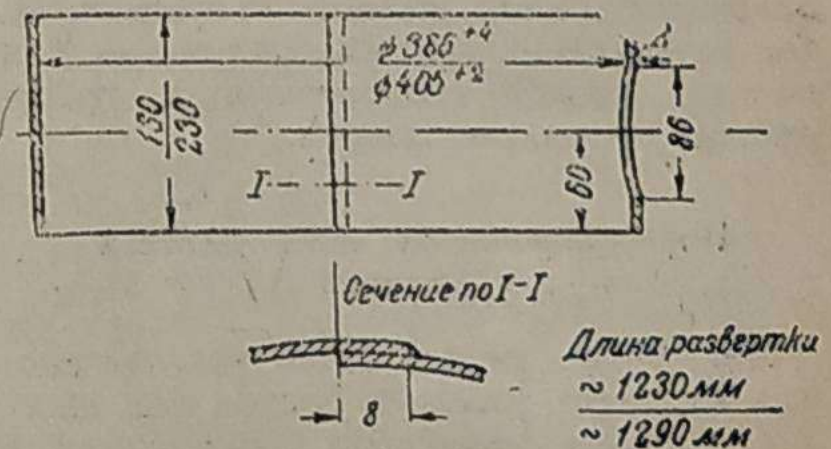 ϕ386⁺⁴
ϕ405⁺²
130
230
86
60
I I
Сечение по I-I
8
Длина развертки
~ 1230мм
~ 1290мм